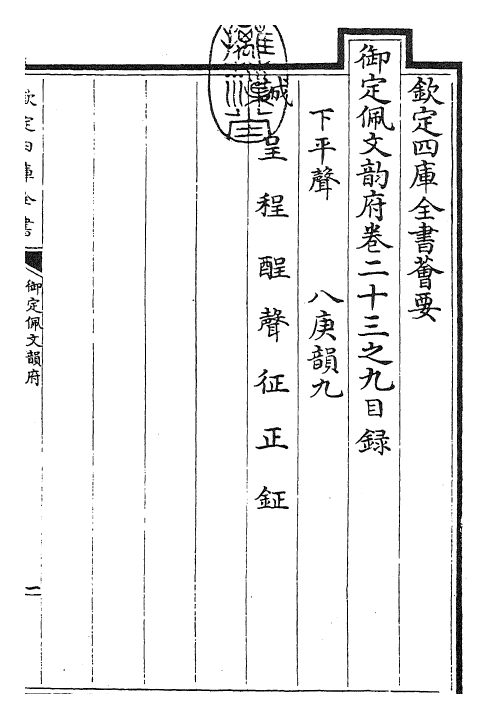 欽定四庫全書薈要
御定佩文韵府卷二十三之九目録
下平聲　八庚韻九
誠　呈　程　酲　聲　征　正　鉦
欽定四庫全書
御定佩文韻府